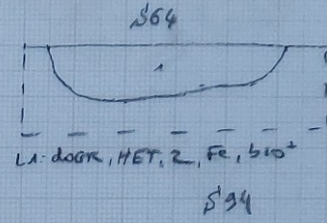 S64
1
L1: dogr, HET, 2, Fe, bio+
S94